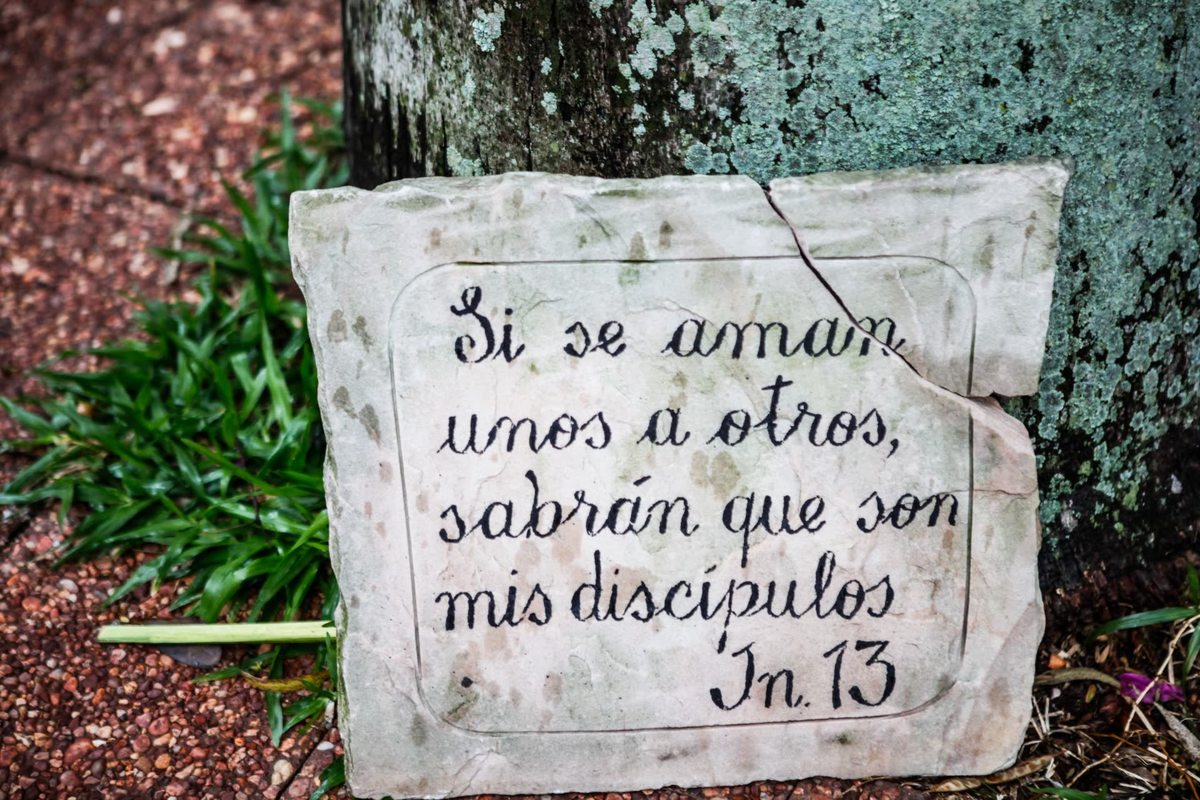 Si se aman
unos a otros,
sabrán que son
mis discípulos
Jn. 13